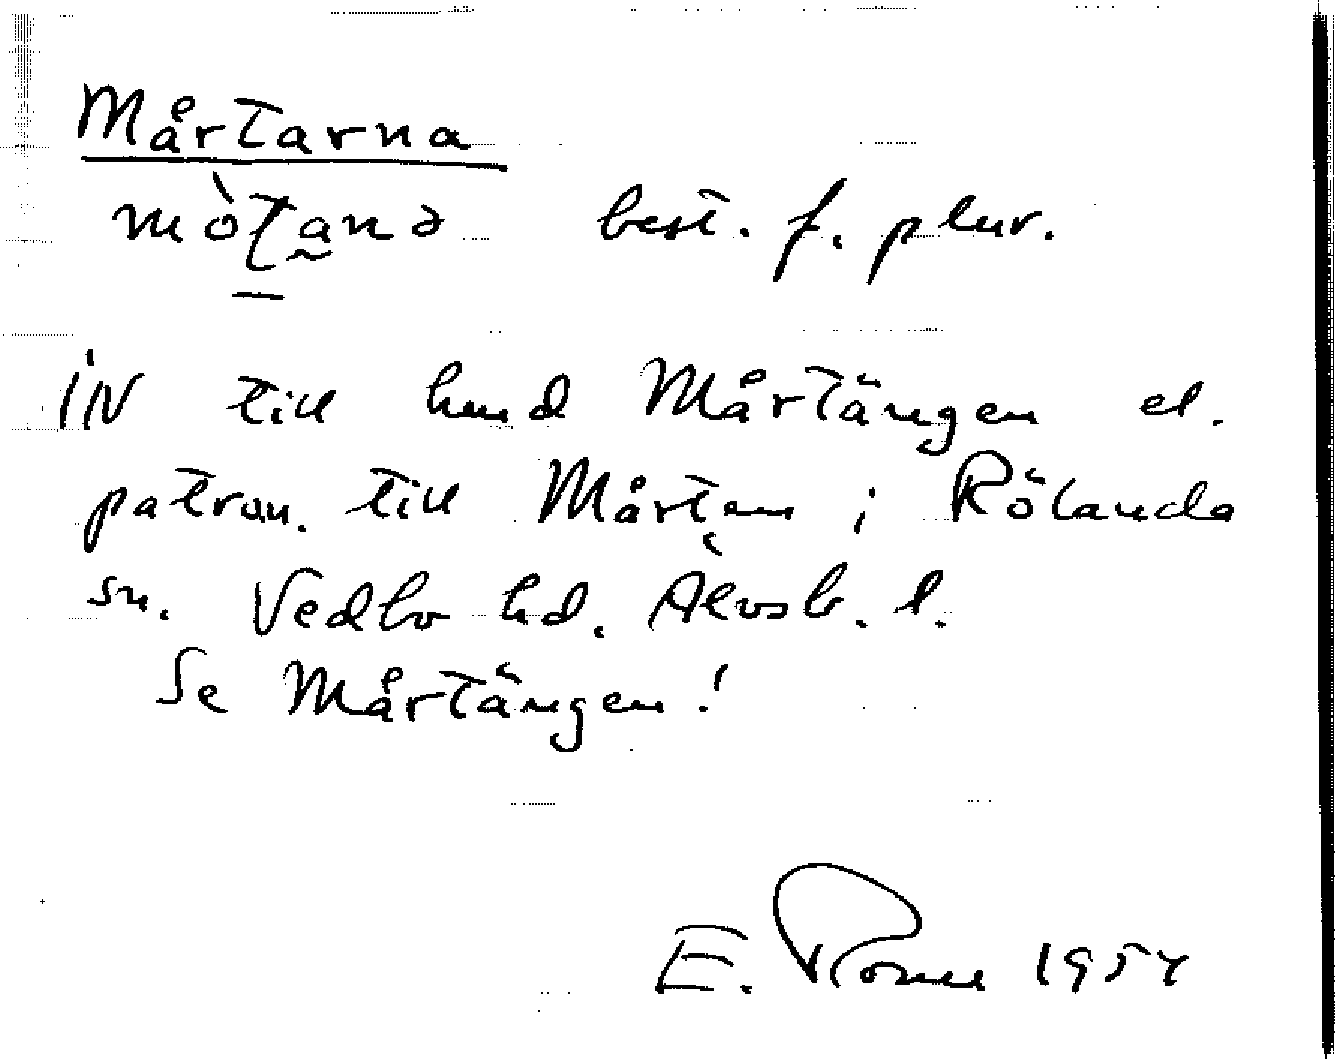 Mårtarna
mòʈa̰nə best. f. plur.
IN till hmd Mårtängen el.
patron. till Mårten i Rölanda
sn. Vedbo hd. Älvsb. l.
Se Mårtängen!
E. 1954